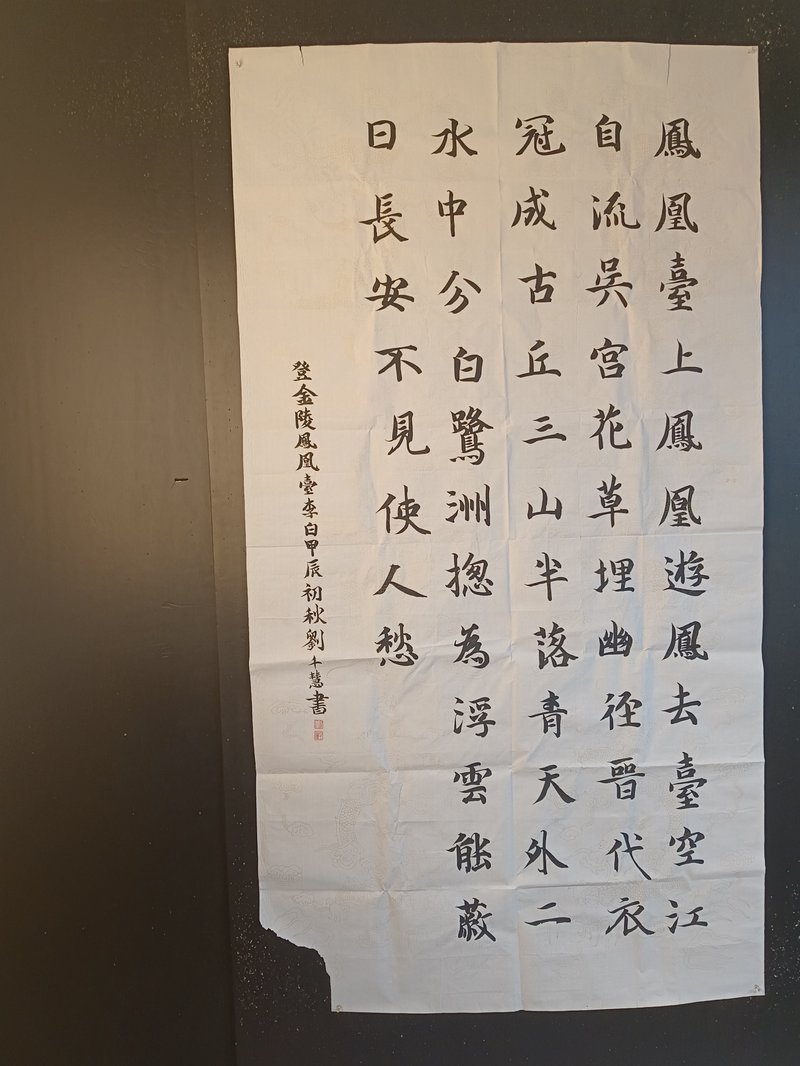 鳳凰臺上鳳凰遊鳳去臺空江
自流吳宮花草埋幽徑晉代衣
冠成古丘三山半落青天外二
水中分白鷺洲摠為浮雲能蔽
日長安不見使人愁
登金陵鳳凰臺李白甲辰初秋劉千慧書